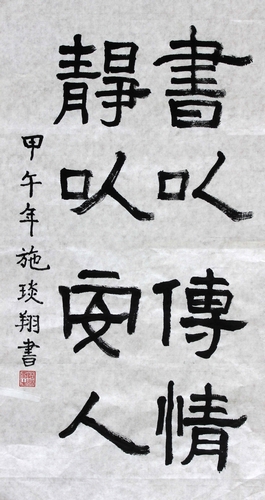 書以傳情
靜以安人
甲午年施琰翔書